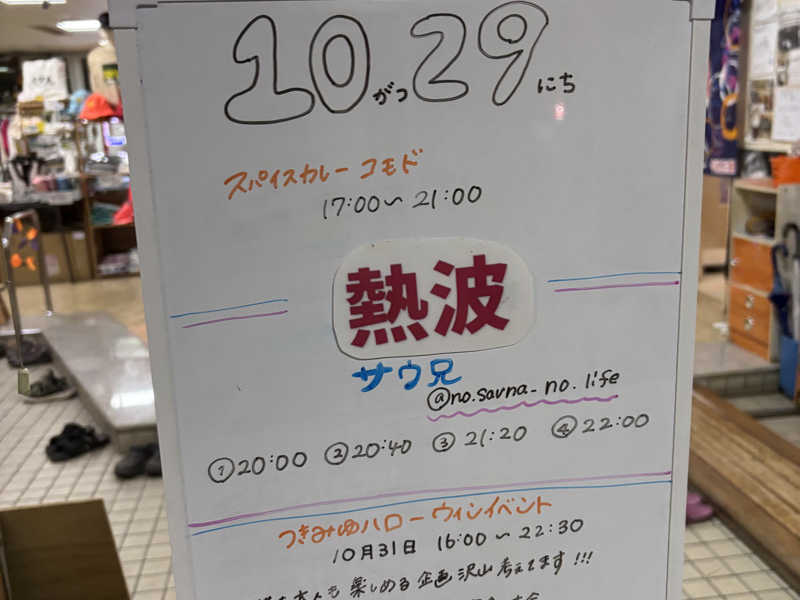 10がつ29にち
スパイスカレー コモド
17:00〜21:00
熱波
サウ兄
@no.sauna_no.life
①20:00 ②20:40 ③21:20 ④22:00
つきみゆハローウィンイベント
10月31日 16:00〜22:30
も楽しめる企画沢山考えてます!!!